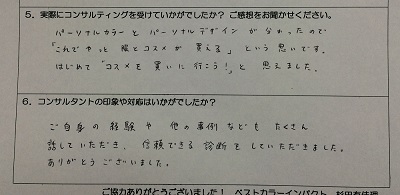 5. 実際にコンサルティングを受けていかがでしたか？ ご感想をお聞かせください。
パーソナルカラーと パーソナルデザイン が わかったので
「これで やっと 服とコスメ が 買える」 という 思いです。
はじめて 「コスメ を 買いに 行こう！」 と 思えました。
6. コンサルタントの印象や対応はいかがでしたか？
ご自身の 経験や 他の 事例なども たくさん
話して いただき、信頼できる 診断を していただきました。
ありがとう ございました。
ご協力ありがとうございました！ ベストカラーインパクト 杉田有佳理